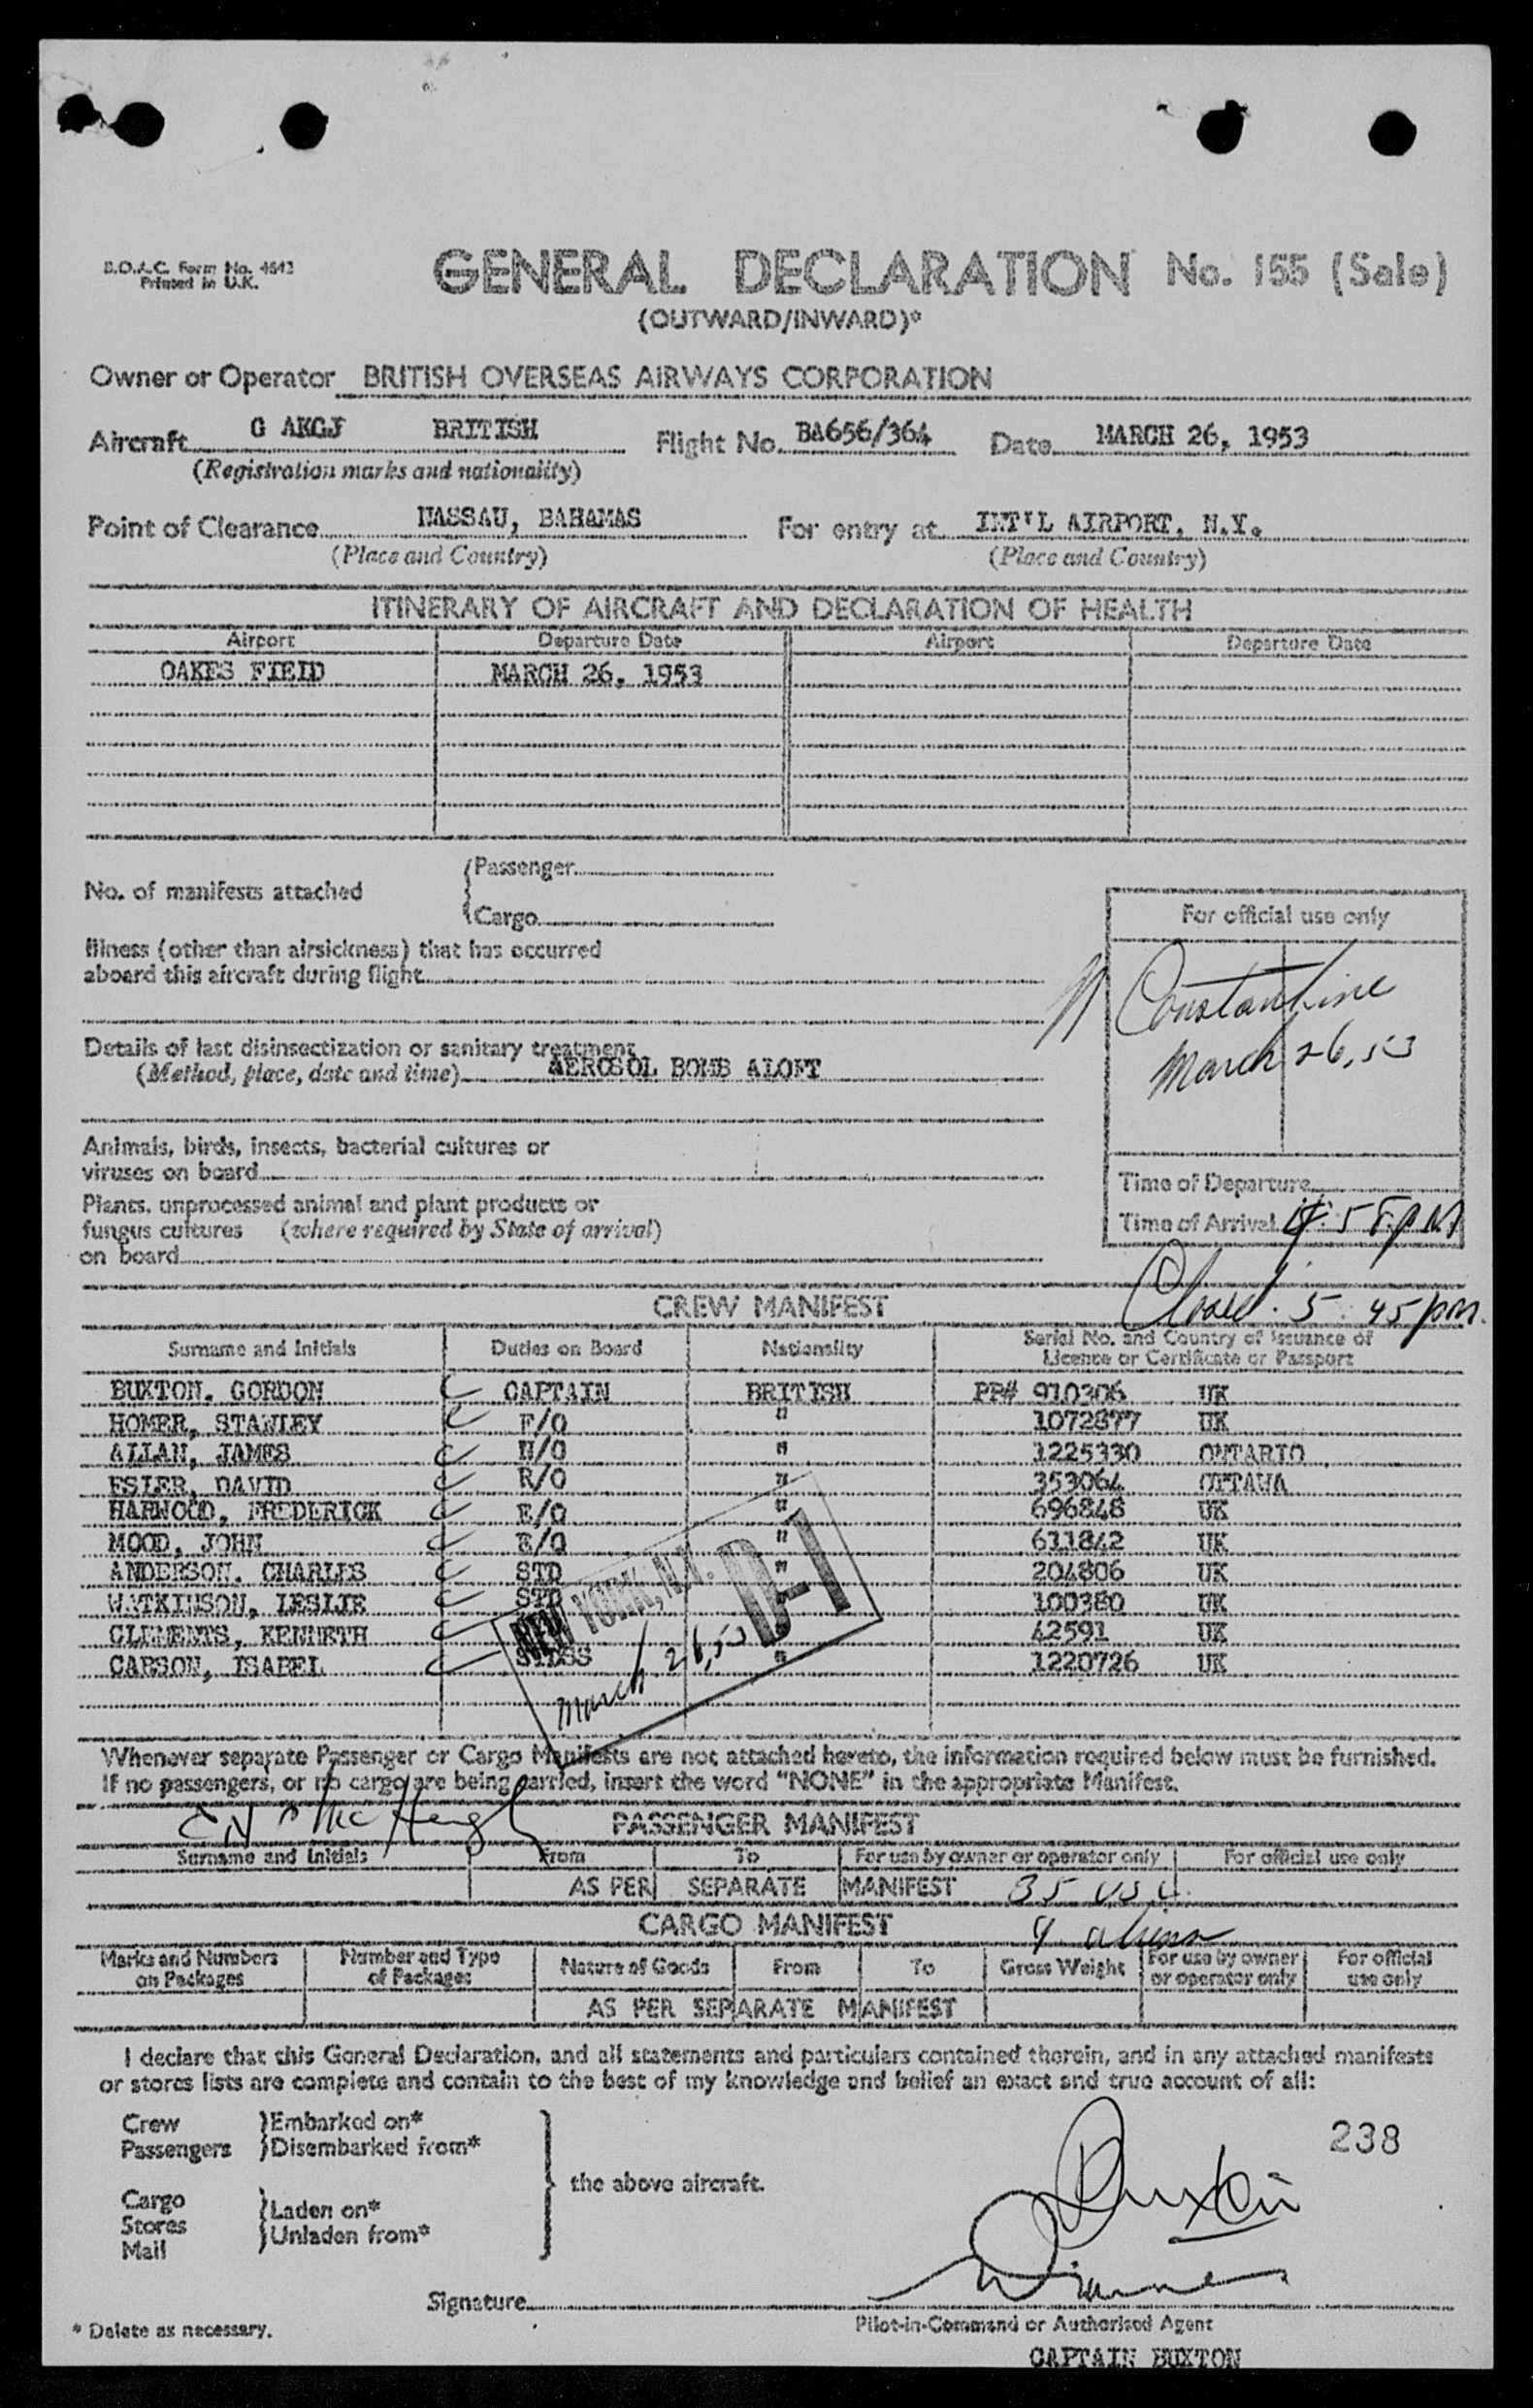 B.O.A.C. Form No. 4642
Printed in U.K.
GENERAL DECLARATION No. 155 (Sale)
(OUTWARD/INWARD)*
Owner or Operator BRITISH OVERSEAS AIRWAYS CORPORATION
Aircraft G AKGJ BRITISH Flight No. BA656/364 Date MARCH 26, 1953
(Registration marks and nationality)
Point of Clearance NASSAU, BAHAMAS For entry at INT'L AIRPORT, N.Y.
(Place and Country) (Place and Country)
ITINERARY OF AIRCRAFT AND DECLARATION OF HEALTH
Airport Departure Date Airport Departure Date
OAKES FIELD MARCH 26, 1953
No. of manifests attached
Passenger
Cargo
For official use only
Illness (other than airsickness) that has occurred
aboard this aircraft during flight
Constantine
March 26, 53
Details of last disinsectization or sanitary treatment
(Method, place, date and time) AEROSOL BOMB ALOFT
Animals, birds, insects, bacterial cultures or
viruses on board
Time of Departure
Plants, unprocessed animal and plant products or
fungus cultures (where required by State of arrival)
on board
Time of Arrival 4:58 P.M
Closed. 5:45 pm.
CREW MANIFEST
Surname and Initials Duties on Board Nationality Serial No. and Country of Issuance of
Licence or Certificate or Passport
BUXTON, GORDON CAPTAIN BRITISH PP# 910306 UK
HOMER, STANLEY F/O " 1072877 UK
ALLAN, JAMES N/O " 1225330 ONTARIO
ESLER, DAVID R/O " 353064 OTTAWA
HARWOOD, FREDERICK E/O " 696848 UK
MOOD, JOHN E/O " 611842 UK
ANDERSON, CHARLES STD " 204806 UK
WATKINSON, LESLIE STD 100380 UK
CLEMENTS, KENNETH 42591 UK
CARSON, ISABEL STDSS " 1220726 UK
NEW YORK, N.Y. D-1
March 26, 53
Whenever separate Passenger or Cargo Manifests are not attached hereto, the information required below must be furnished.
If no passengers, or no cargo are being carried, insert the word "NONE" in the appropriate Manifest.
PASSENGER MANIFEST
Surname and Initials From To For use by owner or operator only For official use only
AS PER SEPARATE MANIFEST 35 USC
CARGO MANIFEST 9 aliens
Marks and Numbers
on Packages
Number and Type
of Packages
Nature of Goods From To Gross Weight
For use by owner
or operator only
For official
use only
AS PER SEPARATE MANIFEST
I declare that this General Declaration, and all statements and particulars contained therein, and in any attached manifests
or stores lists are complete and contain to the best of my knowledge and belief an exact and true account of all:
Crew
Passengers
Embarked on*
Disembarked from*
238
the above aircraft.
Cargo
Stores
Mail
Laden on*
Unladen from*
Buxton
Signature
Pilot-in-Command or Authorised Agent
* Delete as necessary.
CAPTAIN BUXTON